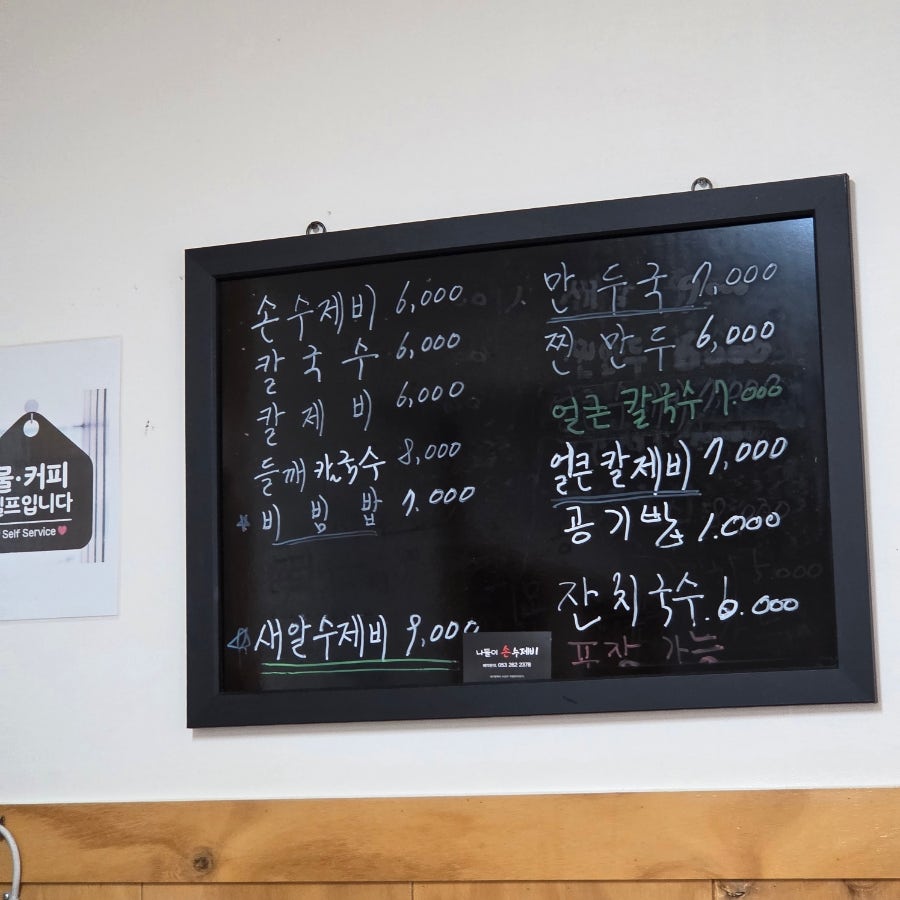 손수제비 6,000
칼국수 6,000
칼제비 6,000
들깨칼국수 8,000
비빔밥 7.000
새알수제비 9,000
만두국 7,000
찐만두 6,000
얼큰칼국수 7.000
얼큰칼제비 7,000
공기밥 1.000
잔치국수 6.000
포장 가능
나들이 손수제비
053 262 2378
물·커피
셀프입니다
Self Service